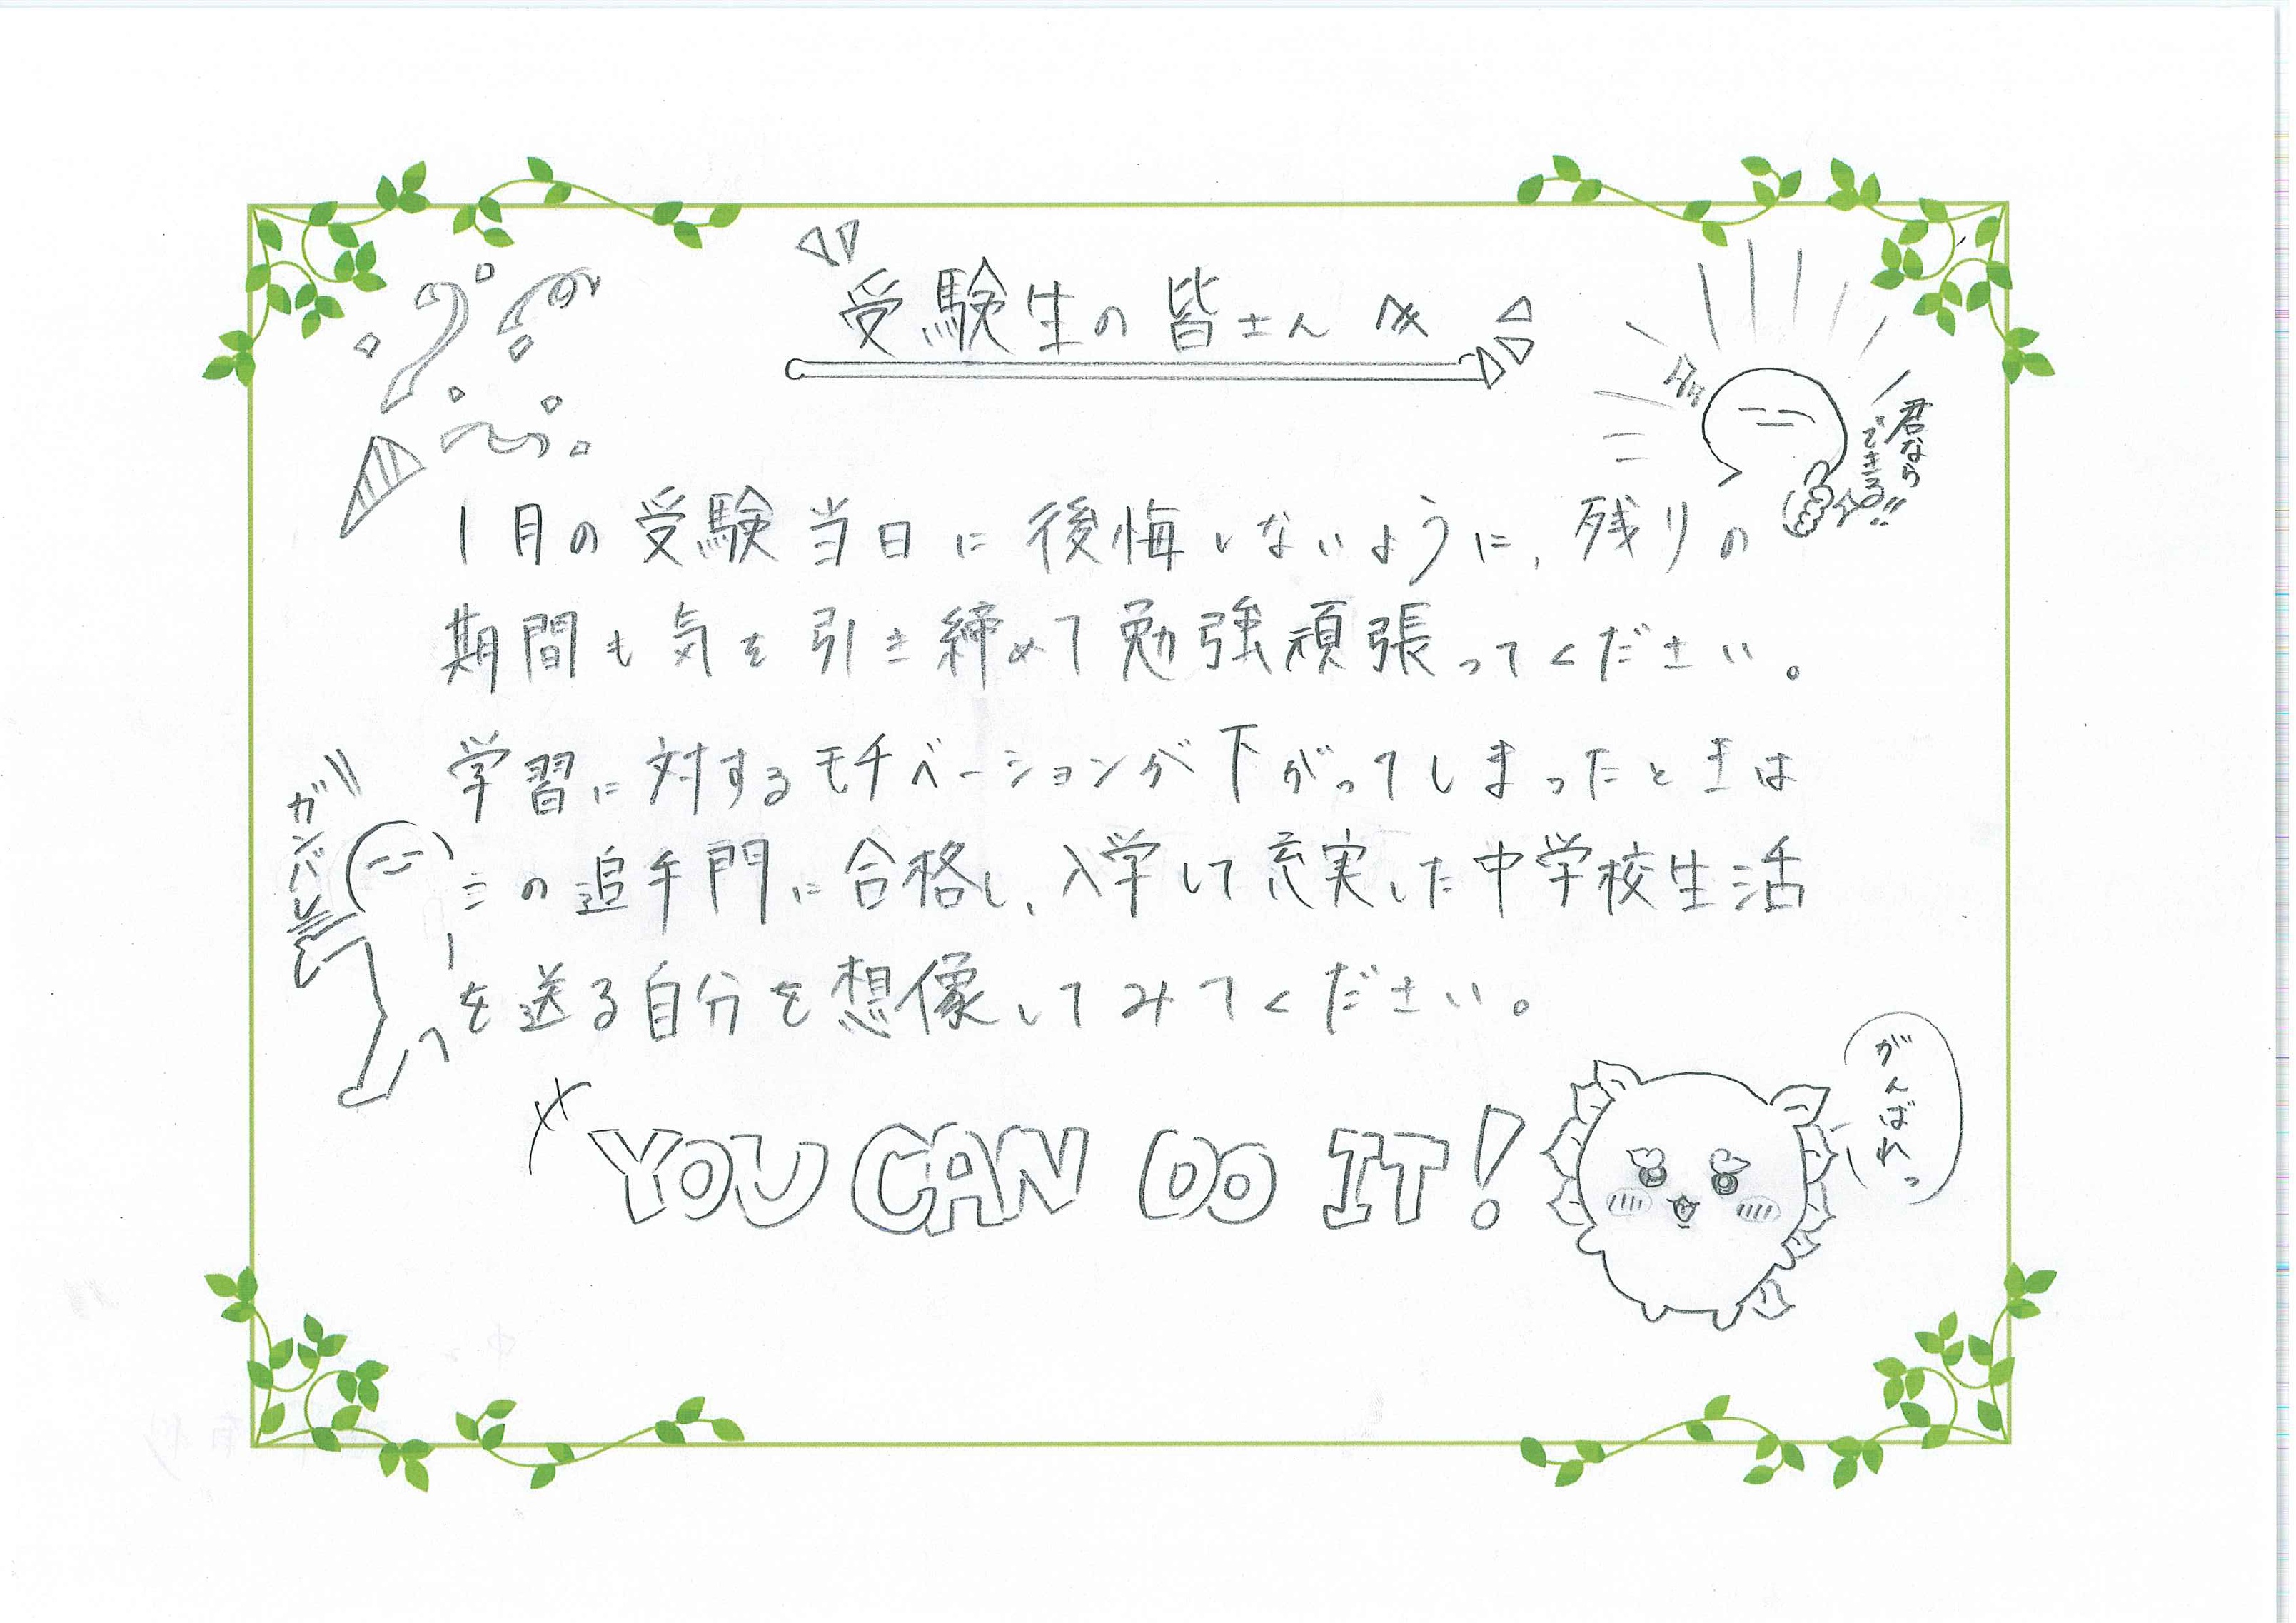 受験生の皆さんへ
君なら
できる!!
1月の受験当日に後悔しないように、残りの
期間も気を引き締めて勉強頑張ってください。
学習に対するモチベーションが下がってしまったときは
この追手門に合格し、入学して充実した中学校生活
を送る自分を想像してみてください。
ガンバレ
YOU CAN DO IT!
がんばれっ